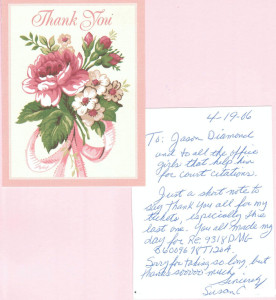 Thank You
4-19-06
To: Jason Diamond
and to all the office
girls that help him
for court citations.
Just a short note to
say Thank you all for my
tickets, especially this
last one. You all made my
day for
Sorry for taking so long but
thanks sooooo much.
Sincerely
Susan C